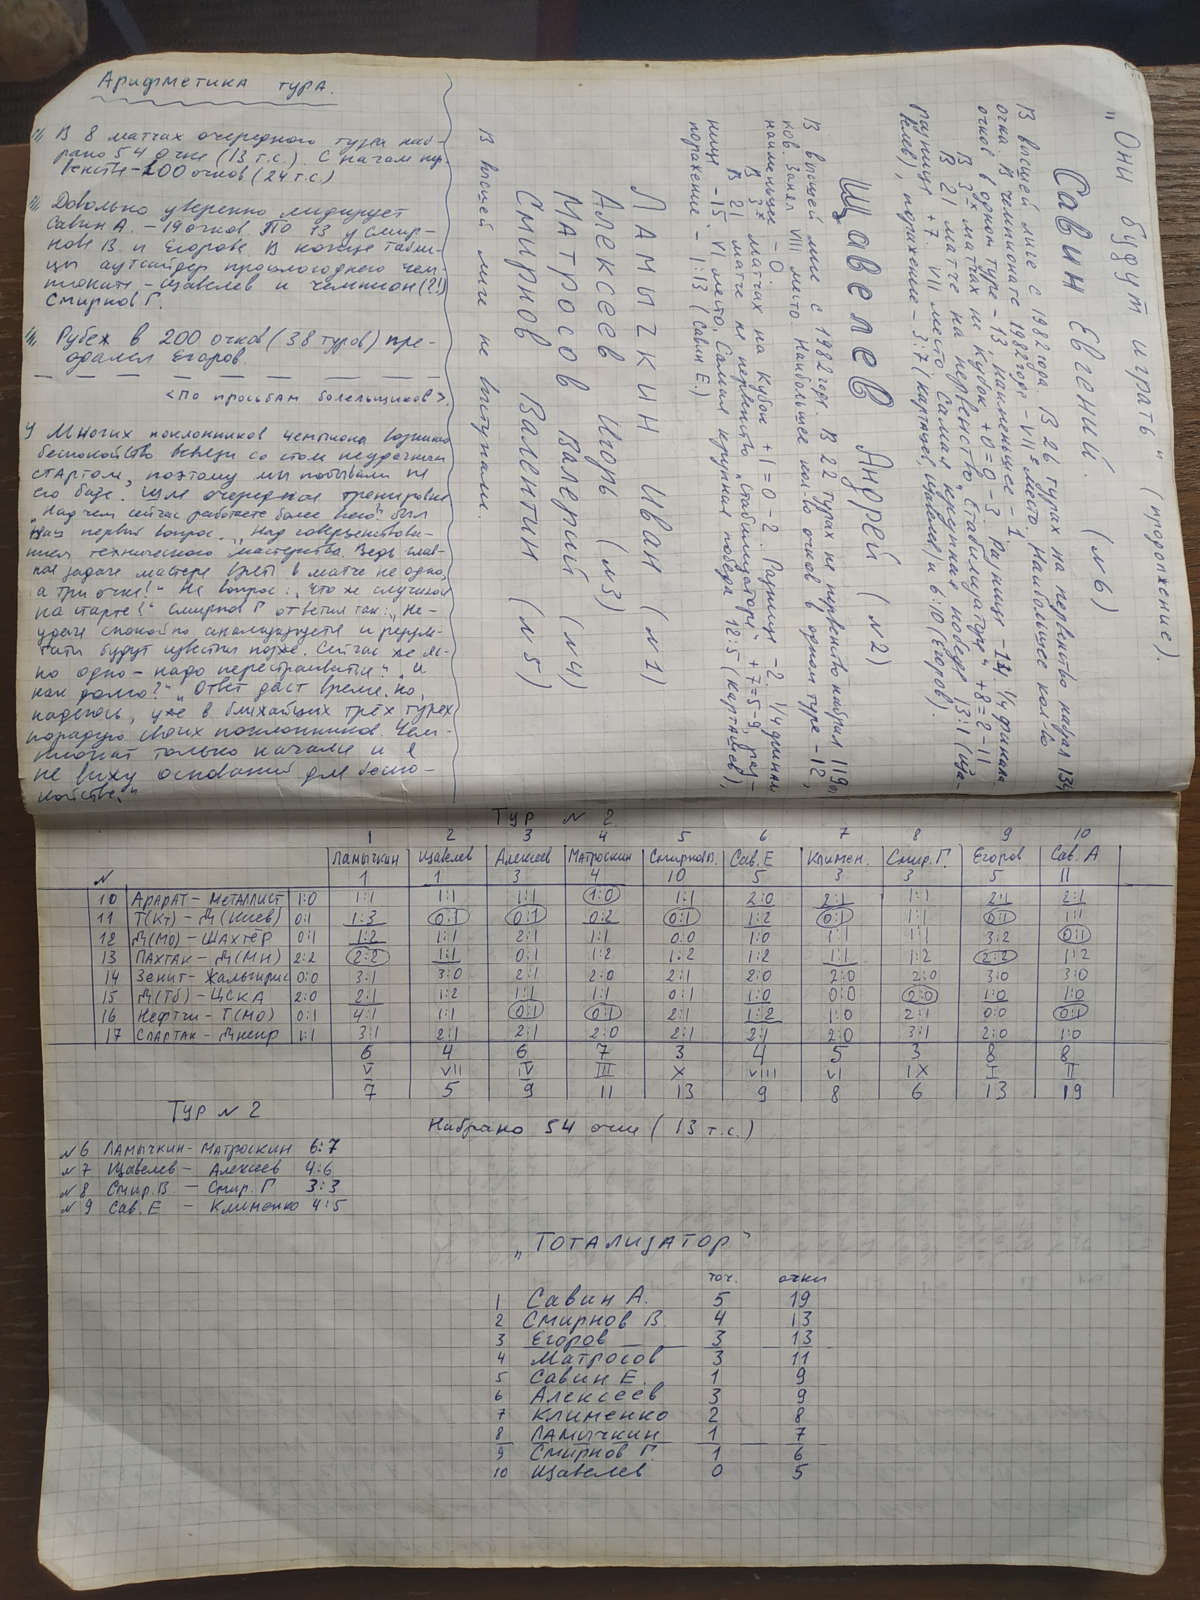 Арифметика тура.
В 8 матчах очередного тура наб-
рано 54 очка (13 т.с.). С начала пер-
венств - 100 очков (24 т.с.)
Довольно уверенно лидирует
Савин А. - 19 очков. По 13 у Смир-
нова В и Егорова. В конце табли-
цы аутсайдер прошлогоднего чем-
пионата - Щавелев и чемпион (?!)
Смирнов Г.
Рубеж в 200 очков (38 туров) пре-
одолел Егоров.
<По просьбам болельщиков>.
У многих поклонников чемпиона возникло
беспокойство в связи со столь неудачным
стартом, поэтому мы побывали на
его базе. Шла очередная тренировка
„Над чем сейчас работаете более всего?" был
наш первый вопрос. „Над совершенствова-
нием технического мастерства. Ведь глав-
ная задача мастера взять в матче не одно,
а три очка!" На вопрос: „Что же случилось
на старте?" Смирнов Г ответил так: „Не-
удача спокойно анализируется и резуль-
таты будут известны позже. Сейчас же яс-
но одно - надо перестраиваться". „И
как долго?" „Ответ даст время, но,
надеюсь, уже в ближайших трёх турах
порадую своих поклонников. Чем-
пионат только начался и я
не вижу оснований для беспо-
койства."
„Они будут играть" (продолжение).
Савин Евгений. (№6)
В высшей лиге с 1982 года. В 26 турах на первенство набрал 134
очка. В чемпионате 1982 года - VII место. Наибольшее кол-во
очков в одном туре - 13, наименьшее - 1.
В 3х матчах на кубок +0=0-3. Разница -14. 1/4 финала.
В 21 матче на первенство „Стабилизатора" +8=2-11
разница +7. VII место. Самая крупная победа 13:1 (Ща-
велев), поражение - 3:7 (Карташев, Щавелев) и 6:10 (Егоров).
Щавелев Андрей (№2)
В высшей лиге с 1982 года. В 22 турах на первенство набрал 119 оч-
ков. Занял VIII место. Наибольшее кол-во очков в одном туре - 12,
наименьшее - 0.
В 3х матчах на Кубок +1=0-2. Разница -2. 1/4 финала
В 21 матче на первенство „стабилизатора" +7=5-9, раз-
ница -15. VI место. Самая крупная победа 12:5 (Карташев),
поражение - 1:13 (Савин Е.)
Ламычкин Иван (№1)
Алексеев Игорь (№3)
Матросов Валерий (№4)
Смирнов Валентин (№5)
В высшей лиге не выступали.
Тур №2
1 2 3 4 5 6 7 8 9 10
Ламычкин Щавелев Алексеев Матроскин Смирнов В. Сав. Е Климен. Смир. Г. Егоров Сав. А
№ 1 1 3 4 10 5 3 3 5 11
10 Арарат - Металлист 1:0 1:1 1:1 1:1 1:0 1:1 2:0 2:1 1:1 2:1 2:1
11 Т(Кт) - Д(Киев) 0:1 1:3 0:1 0:1 0:2 0:1 1:2 0:1 1:1 0:1 1:1
12 Д(Мо) - Шахтёр 0:1 1:2 1:1 2:1 1:1 0:0 1:0 1:1 1:1 3:2 0:1
13 Пахтак - Д(Мн) 2:2 2:2 1:1 0:1 1:2 1:2 1:2 1:1 1:2 2:2 1:2
14 Зенит - Жальгирис 0:0 3:1 3:0 2:1 2:0 2:1 2:0 2:0 2:0 3:0 3:0
15 Д(Тб) - ЦСКА 2:0 2:1 1:2 1:1 1:1 0:1 1:0 0:0 2:0 1:0 1:0
16 Нефтчи - Т(Мо) 0:1 4:1 1:1 0:1 0:1 2:1 1:2 1:0 2:1 0:0 0:1
17 Спартак - Днепр 1:1 3:1 2:1 2:1 2:0 2:1 2:1 2:0 3:1 2:0 1:0
6 4 6 7 3 4 5 3 8 8
V VII IV III X VIII VI IX I II
7 5 9 11 13 9 8 6 13 19
Тур №2
Набрано 54 очка (13 т.с.)
№6 Ламычкин - Матроскин 6:7
№7 Щавелев - Алексеев 4:6
№8 Смир. В - Смир. Г 3:3
№9 Сав. Е - Клименко 4:5
„Тотализатор"
точ. очки
1 Савин А. 5 19
2 Смирнов В. 4 13
3 Егоров 3 13
4 Матросов 3 11
5 Савин Е. 1 9
6 Алексеев 3 9
7 Клименко 2 8
8 Ламычкин 1 7
9 Смирнов Г. 1 6
10 Щавелев 0 5